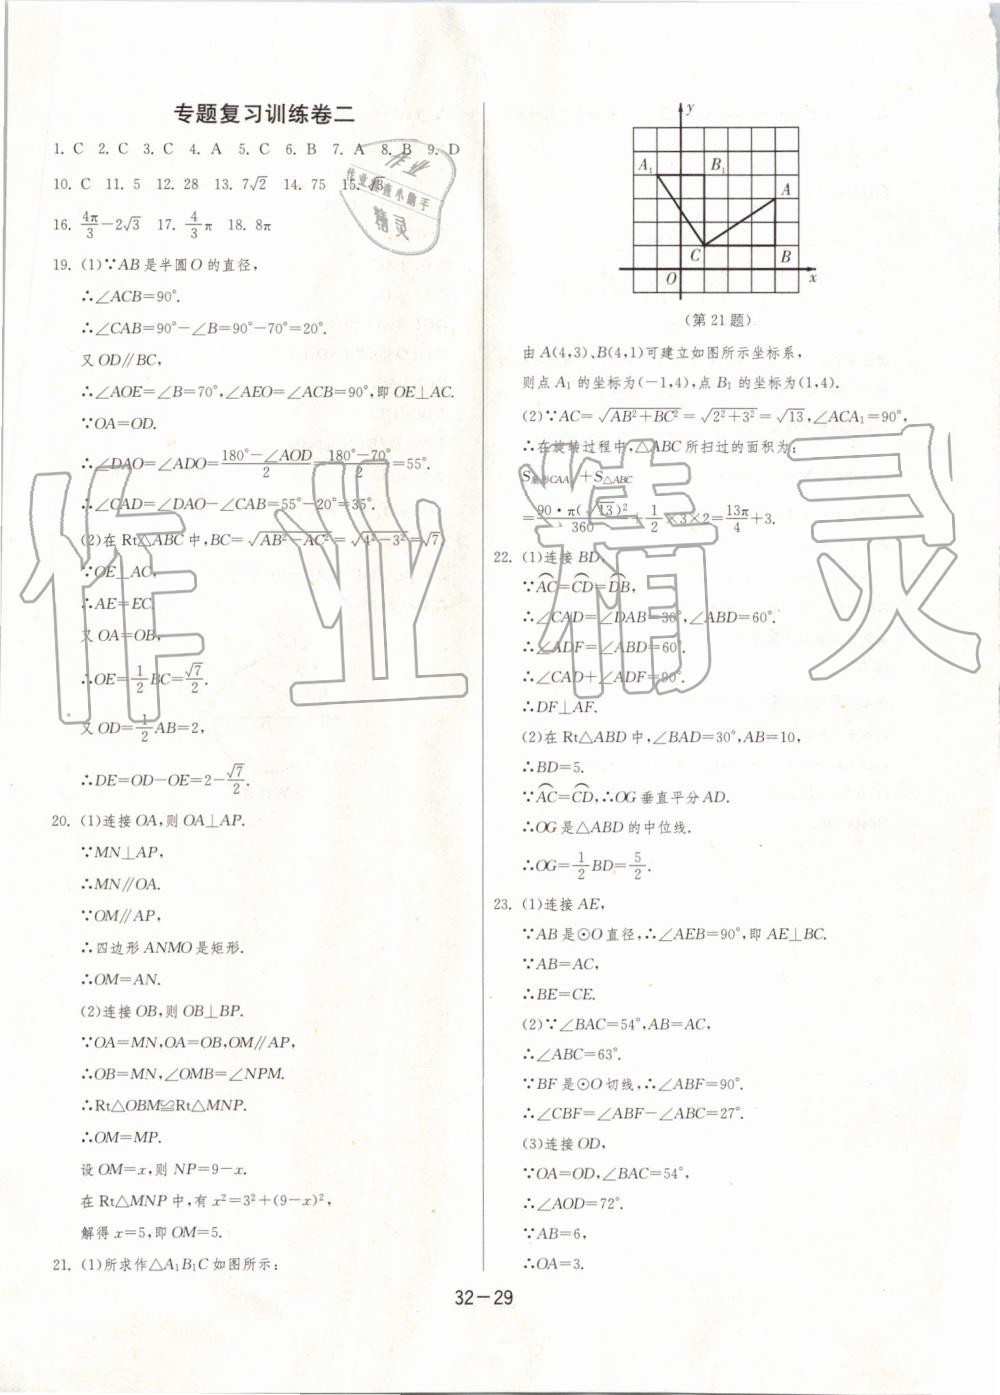 专题复习训练卷二
1. C 2. C 3. C 4. A 5. C 6. B 7. A 8. B 9. D
10. C 11. 5 12. 28 13. 7√2 14. 75 15. √3
16. 4π/3－2√3 17. 4/3π 18. 8π
19. (1)∵AB是半圆O的直径，
∴∠ACB＝90°.
∴∠CAB＝90°－∠B＝90°－70°＝20°.
又OD∥BC，
∴∠AOE＝∠B＝70°，∠AEO＝∠ACB＝90°，即OE⊥AC.
∵OA＝OD.
∴∠DAO＝∠ADO＝(180°－∠AOD)/2＝(180°－70°)/2＝55°.
∴∠CAD＝∠DAO－∠CAB＝55°－20°＝35°.
(2)在Rt△ABC中，BC＝√(AB²－AC²)＝√(4²－3²)＝√7.
∵OE⊥AC，
∴AE＝EC.
又OA＝OB，
∴OE＝1/2BC＝√7/2.
又OD＝1/2AB＝2，
∴DE＝OD－OE＝2－√7/2.
20. (1)连接OA，则OA⊥AP.
∵MN⊥AP，
∴MN∥OA.
∵OM∥AP，
∴四边形ANMO是矩形.
∴OM＝AN.
(2)连接OB，则OB⊥BP.
∵OA＝MN，OA＝OB，OM∥AP，
∴OB＝MN，∠OMB＝∠NPM.
∴Rt△OBM≌Rt△MNP.
∴OM＝MP.
设OM＝x，则NP＝9－x.
在Rt△MNP中，有x²＝3²＋(9－x)²，
解得x＝5，即OM＝5.
21. (1)所求作△A₁B₁C如图所示：
y
A₁ B₁
A
C B
O x
(第21题)
由A(4,3)、B(4,1)可建立如图所示坐标系，
则点A₁的坐标为(－1,4)，点B₁的坐标为(1,4).
(2)∵AC＝√(AB²＋BC²)＝√(2²＋3²)＝√13，∠ACA₁＝90°，
∴在旋转过程中，△ABC所扫过的面积为：
S扇形CAA₁＋S△ABC
＝90·π(√13)²/360＋1/2×3×2＝13π/4＋3.
22. (1)连接BD，
∵A͡C＝C͡D＝D͡B，
∴∠CAD＝∠DAB＝30°，∠ABD＝60°.
∴∠ADF＝∠ABD＝60°.
∴∠CAD＋∠ADF＝90°.
∴DF⊥AF.
(2)在Rt△ABD中，∠BAD＝30°，AB＝10，
∴BD＝5.
∵A͡C＝C͡D，∴OG垂直平分AD.
∴OG是△ABD的中位线.
∴OG＝1/2BD＝5/2.
23. (1)连接AE，
∵AB是⊙O直径，∴∠AEB＝90°，即AE⊥BC.
∵AB＝AC，
∴BE＝CE.
(2)∵∠BAC＝54°，AB＝AC，
∴∠ABC＝63°.
∵BF是⊙O切线，∴∠ABF＝90°.
∴∠CBF＝∠ABF－∠ABC＝27°.
(3)连接OD，
∵OA＝OD，∠BAC＝54°，
∴∠AOD＝72°.
∵AB＝6，
∴OA＝3.
32－29
作业精灵